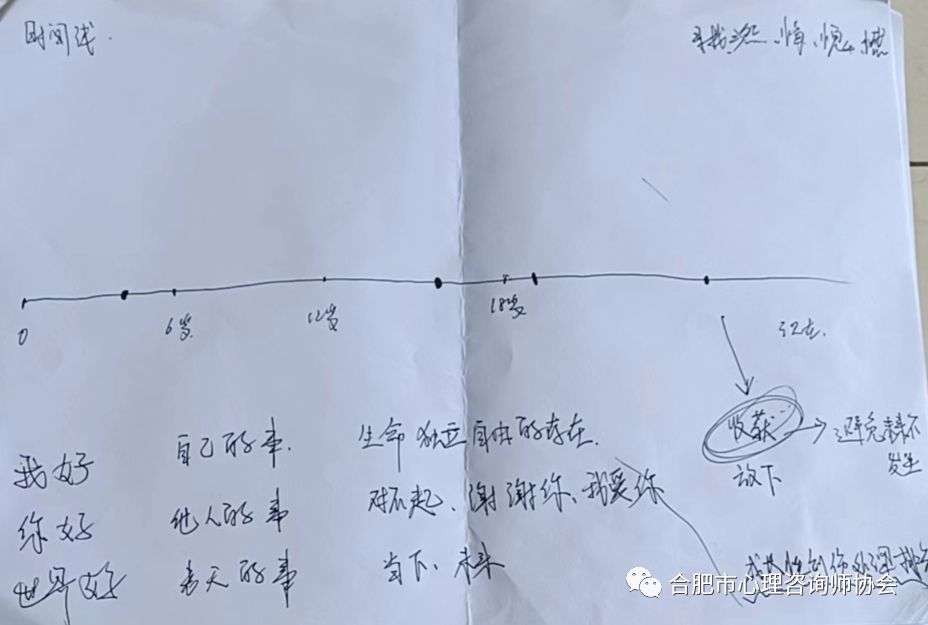 时间线.
寻找怨、悔、愧、憾
0 6岁. 12岁 18岁 现在.
我好 自己的事. 生命 独立 自由的存在. 收获 → 避免未来不发生
你好 他人的事 对不起、谢谢你、我爱你 放下
世界好 老天的事 当下、未来 处理
合肥市心理咨询师协会